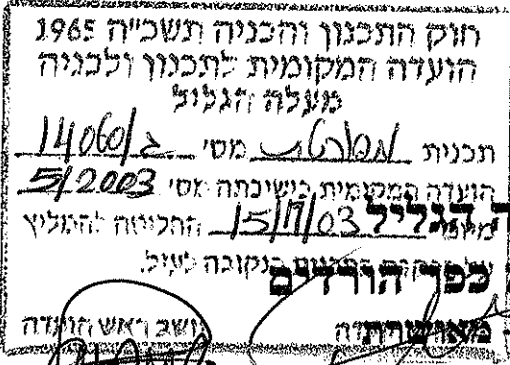 חוק התכנון והבניה תשכ״ה 1965
הועדה המקומית לתכנון ולבניה
מעלה הגליל
תכנית מפורטת מס' ג/14060
הועדה המקומית בישיבתה מס' 5/2003
מיום 15/ /03 החליטה להמליץ
הגליל
הנקובה לעיל.
כפר הורדים
יושב ראש הועדה
מאושרת